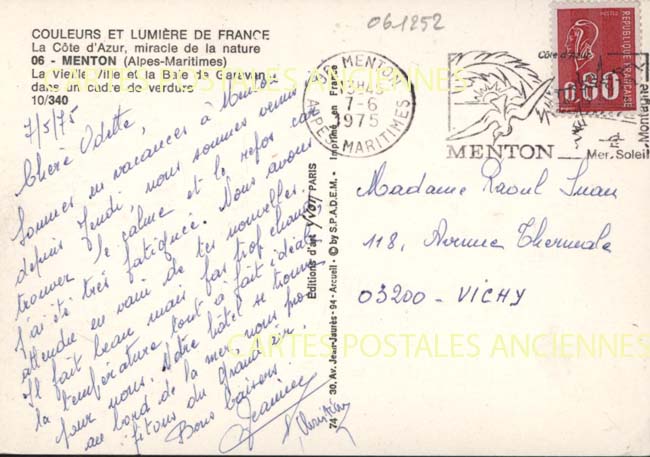 061252
COULEURS ET LUMIÈRE DE FRANCE
La Côte d'Azur, miracle de la nature
06 - MENTON (Alpes-Maritimes)
La vieille Ville et la Baie de Garavan
dans un cadre de verdure
10/340
7/5/75
Chère Odette,
Sommes en vacances à Menton
depuis Jeudi, nous sommes venus
trouver le calme et le repos car
J'ai été très fatiguée. Nous avons
attendu en vain de tes nouvelles.
Il fait beau mais pas trop chaud
la température tout à fait idéale
pour nous. Notre hôtel se trouve
au bord de la mer nous pro-
fitons du grand air.
Bons baisers.
Jeanine
Christian
Éditions d'art Yvon PARIS
30, Av. Jean-Jaurès - 94 - Arcueil - © by S.P.A.D.E.M. - Imprimé en France
74
MENTON
7-6
1975
ALPES MARITIMES
Côte d'Azur
MENTON
Mer. Soleil
Montagne
REPUBLIQUE FRANÇAISE
0,80
Madame Raoul Juan
118, Avenue Thermale
03200 - VICHY
CARTES POSTALES ANCIENNES
CARTES POSTALES ANCIENNES